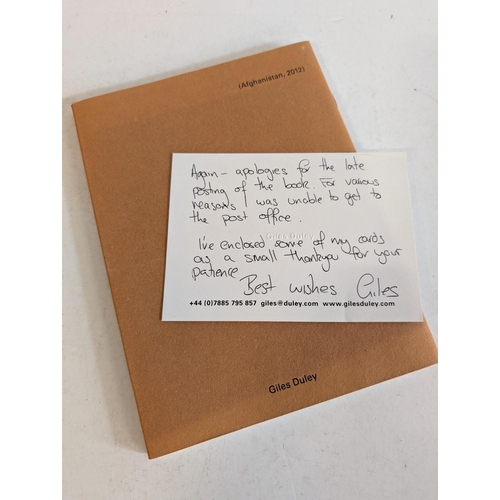 (Afghanistan, 2012)
Again - apologies for the late
posting of the book. For various
reasons I was unable to get to
the post office.
Giles Duley
I've enclosed some of my cards
as a small thankyou for your
patience
Best wishes Giles
+44 (0)7885 795 857 giles@duley.com www.gilesduley.com
Giles Duley